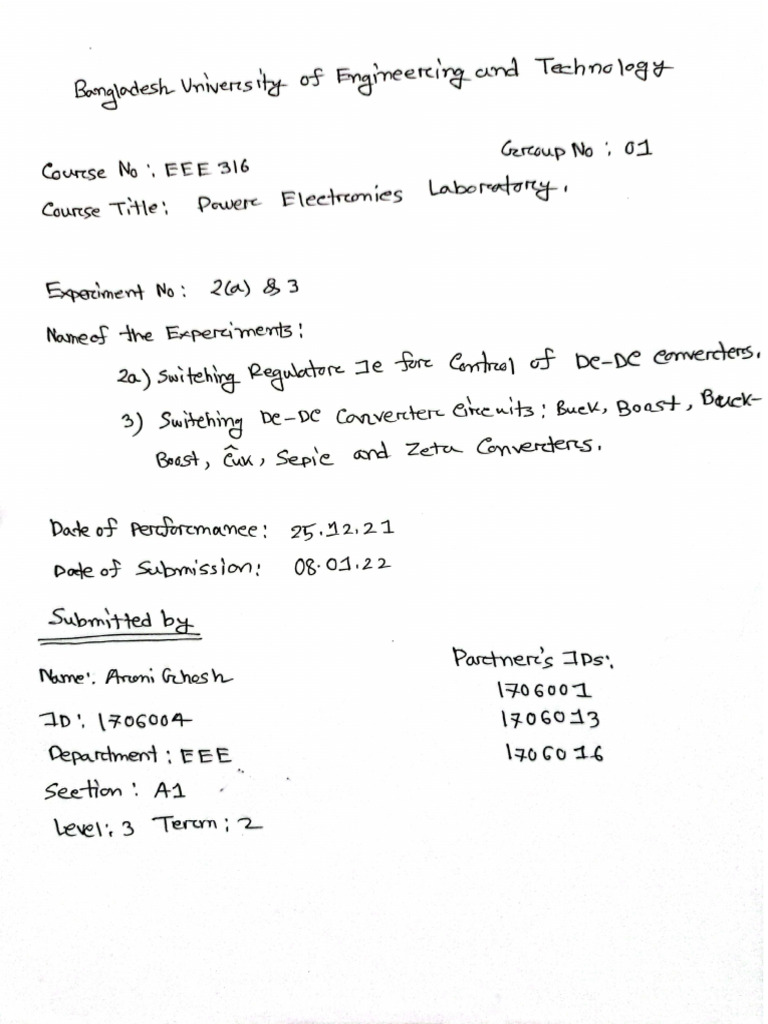 Bangladesh University of Engineering and Technology
Group No : 01
Course No : EEE 316
Course Title : Power Electronics Laboratory.
Experiment No : 2(a) & 3
Name of the Experiments :
2a) Switching Regulator IC for Control of DC-DC Converters.
3) Switching DC-DC Converter Circuits : Buck, Boost, Buck-
Boost, Ĉuk, Sepic and Zeta Converters.
Date of Performance : 25.12.21
Date of Submission : 08.01.22
Submitted by
Name : Aroni Ghosh
ID : 1706004
Department : EEE
Section : A1
Level : 3 Term : 2
Partner's IDs :
1706001
1706013
1706016